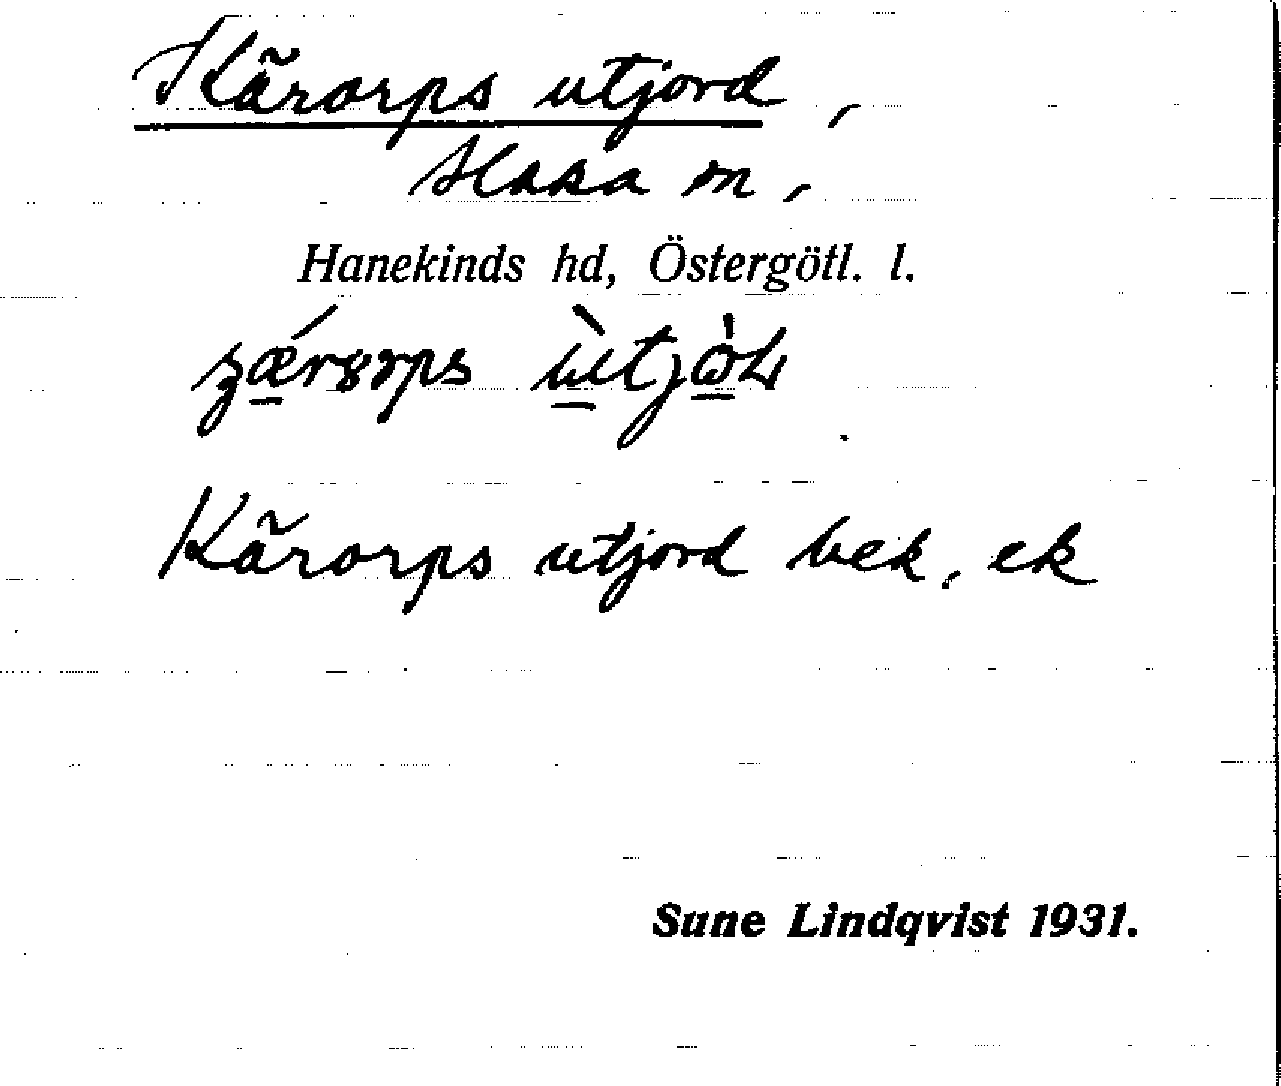 Kärorps utjord,
Slaka sn,
Hanekinds hd, Östergötl. l.
Kärorps utjord bek, ek
Sune Lindqvist 1931.